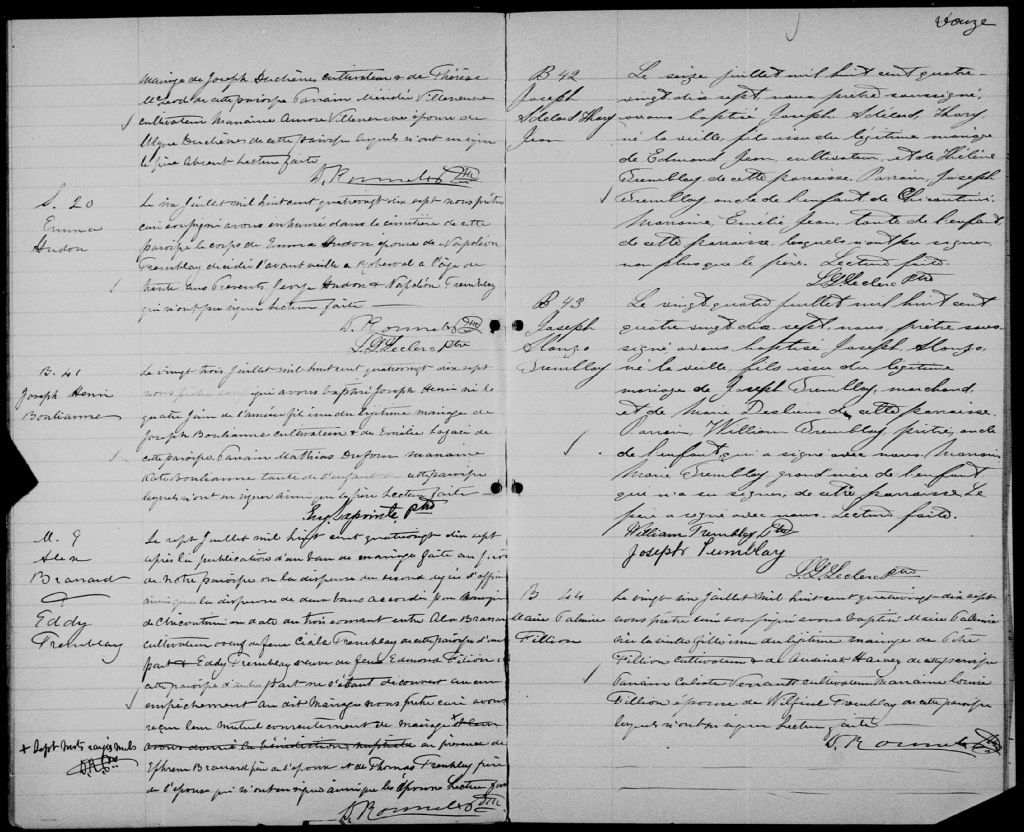 mariage de Joseph Duchènes cultivateur & de Thérèse
McLeod de cette paroisse Parrain Méridé Villeneuve
cultivateur Marraine Aurore Villeneuve épouse de
Duchènes de cette paroisse lesquels n'ont su signer
le père absent Lecture faite
S. 20
Emma
Hudon
Le six Juillet mil huit cent quatrevingt dix sept nous prêtre
curé soussigné avons inhumé dans le cimetière de cette
paroisse le corps de Emma Hudon épouse de Napoléon
Tremblay décédée l'avant veille à Roberval à l'âge de
trente ans Présents George Hudon & Napoléon Tremblay
qui n'ont pu signer Lecture faite
J. G. Leclerc Ptre
B. 41
Joseph Henri
Boulianne
Le vingt trois juillet mil huit cent quatrevingt dix sept
nous prêtre avons baptisé Joseph Henri né le
quatre Juin de l'année fils issu du légitime mariage de
Joseph Boulianne cultivateur & de Emélie de
cette paroisse Parrain Mathias Dufour Marraine
Boulianne tante de l'enfant de cette paroisse
lesquels n'ont su signer ainsi que le père Lecture faite
Eug. Lapointe, Ptre
M. 8
Alex
Brassard
&
Eddy
Tremblay
Le sept Juillet mil huit cent quatrevingt dix sept
après la publication d'un ban de mariage faite au prône
de notre paroisse vu la dispense du second degré d'affinité
ainsi que la dispense de deux bans accordée par Monseigneur
de Chicoutimi en date du trois courant entre Alex Brassard
cultivateur veuf de feue Tremblay de cette paroisse d'une
part & Eddy Tremblay veuve de feu Edmond Fillion de
cette paroisse d'autre part ne s'étant découvert aucun
empêchement au dit mariage nous prêtre curé avons
reçu leur mutuel consentement de mariage + et leur
avons donné la bénédiction nuptiale en présence de
Ephrem Brassard père de l'époux et de Thomas Tremblay père
de l'épouse qui n'ont su signer ainsi que les époux Lecture faite
+ Sept mots rayés nuls
Douze
B 42
Joseph
Adélard Thary
Jean
Le seize juillet mil huit cent quatre-
vingt dix sept, nous prêtre soussigné,
avons baptisé Joseph Adélard Thary
né la veille, fils issu du légitime mariage
de Edmond Jean, cultivateur, et de Hélène
Tremblay de cette paroisse. Parrain, Joseph
Tremblay oncle de l'enfant de Chicoutimi.
Marraine Emélie Jean, tante de l'enfant
de cette paroisse, lesquels n'ont pu signer,
non plus que le père. Lecture faite.
J. G. Leclerc Ptre
B 43
Joseph
Alonzo
Tremblay
Le vingt quatre juillet mil huit cent
quatre vingt dix sept, nous, prêtre sous-
signé avons baptisé Joseph, Alonzo,
né la veille, fils issu du légitime
mariage de Joseph Tremblay, marchand
et de Marie Desbiens de cette paroisse.
Parrain, William Tremblay prêtre, oncle
de l'enfant, qui a signé avec nous. Marraine
Marie Tremblay grand'mère de l'enfant
qui n'a su signer, de cette paroisse. Le
père a signé avec nous. Lecture faite.
William Tremblay Ptre
Joseph Tremblay
J. G. Leclerc Ptre
B 44
Marie Palmire
Fillion
Le vingt six Juillet mil huit cent quatrevingt dix sept
nous prêtre curé soussigné avons baptisé Marie Palmire
née la veille fille issue du légitime mariage de Pitre
Fillion cultivateur & de Harvey de cette paroisse
Parrain Calixte cultivateur Marraine Louise
Fillion épouse de Wilfrid Tremblay de cette paroisse
lesquels n'ont pu signer Lecture faite